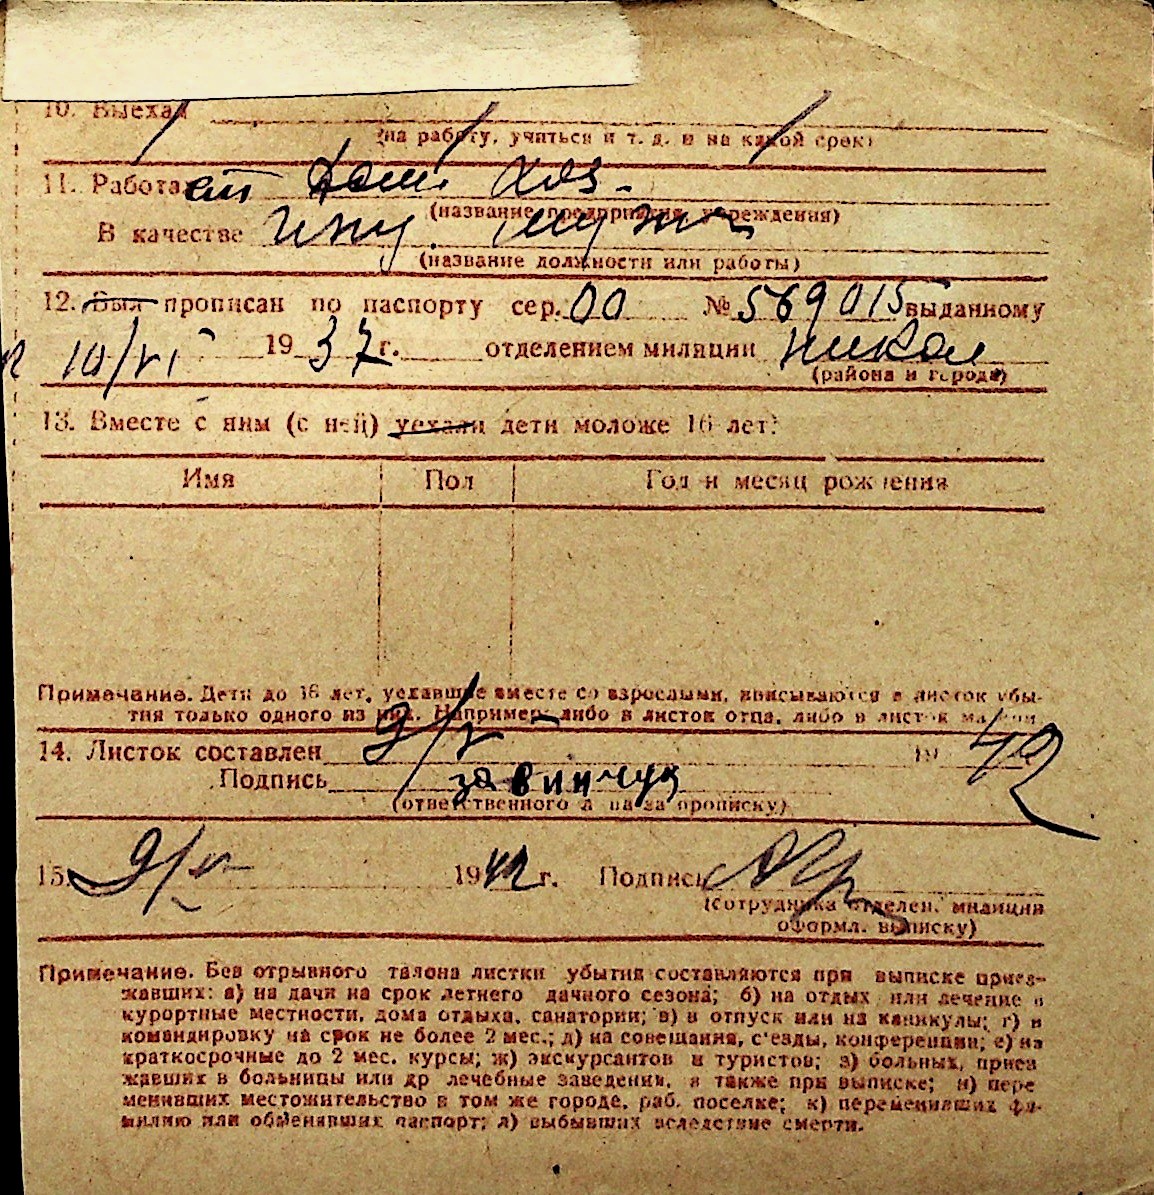 10. Выехал
(на работу, учиться и т. д. и на какой срок)
11. Работает Дом. Хоз.
(название предприятия, учреждения)
В качестве ижд. мужа
(название должности или работы)
12. Был прописан по паспорту сер. 00 № 569015 выданному
10/VI 1937 г. отделением милиции Никол
(района и города)
13. Вместе с ним (с ней) уехали дети моложе 16 лет:
Имя Пол Год и месяц рождения
Примечание. Дети до 16 лет, уехавшие вместе со взрослыми, вписываются в листок убы-
тия только одного из них. Например: либо в листок отца, либо в листок матери.
14. Листок составлен 9/V 19 42
Подпись
(ответственного лица за прописку)
15. 9/V 1942 г. Подпись
(Сотрудника отделен. милиции
оформл. выписку)
Примечание. Без отрывного талона листки убытия составляются при выписке приез-
жавших: а) на дачи на срок летнего дачного сезона; б) на отдых или лечение в
курортные местности, дома отдыха, санатории; в) в отпуск или на каникулы; г) в
командировку на срок не более 2 мес.; д) на совещания, с'езды, конференции; е) на
краткосрочные до 2 мес. курсы; ж) экскурсантов и туристов; з) больных, приез
жавших в больницы или др лечебные заведения, а также при выписке; и) пере
менивших местожительство в том же городе, раб. поселке; к) переменивших фа-
милию или обменявших паспорт; л) выбывших вследствие смерти.